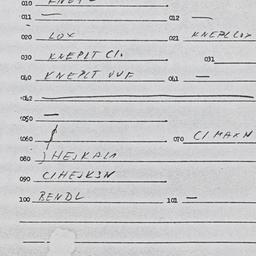 010
011 — 012 —
020 LOX 021 KNEPLLOX
030 KNEPLT CL. 031
040 KNEPLT VVF 041 —
042
050 —
060 / 070 CIMAXN
080 JHEJKALA
090 CIHEJKJN
100 BENDL 101 —